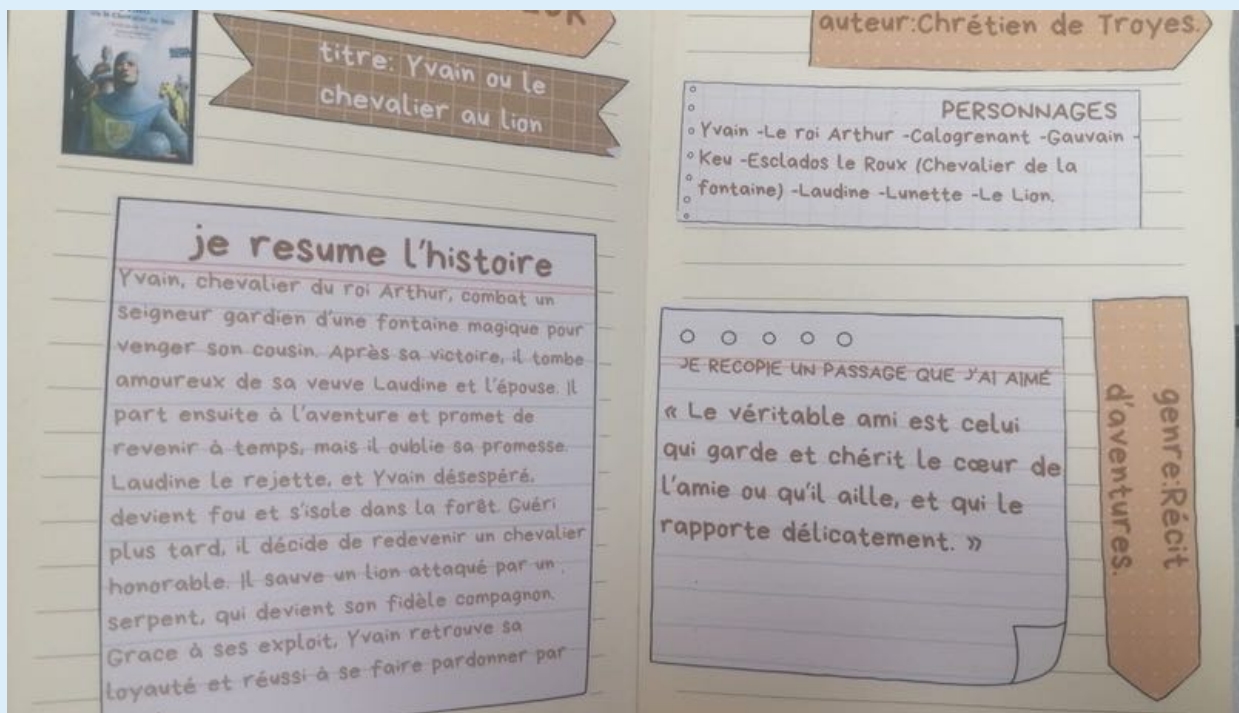 titre: Yvain ou le
chevalier au lion
je resume l'histoire
Yvain, chevalier du roi Arthur, combat un
seigneur gardien d'une fontaine magique pour
venger son cousin. Après sa victoire, il tombe
amoureux de sa veuve Laudine et l'épouse. Il
part ensuite à l'aventure et promet de
revenir à temps, mais il oublie sa promesse.
Laudine le rejette, et Yvain désespéré,
devient fou et s'isole dans la forêt. Guéri
plus tard, il décide de redevenir un chevalier
honorable. Il sauve un lion attaqué par un
serpent, qui devient son fidèle compagnon.
Grace à ses exploit, Yvain retrouve sa
loyauté et réussi à se faire pardonner par
auteur:Chrétien de Troyes.
PERSONNAGES
Yvain -Le roi Arthur -Calogrenant -Gauvain -
Keu -Esclados le Roux (Chevalier de la
fontaine) -Laudine -Lunette -Le Lion.
JE RECOPIE UN PASSAGE QUE J'AI AIMÉ
« Le véritable ami est celui
qui garde et chérit le cœur de
l'amie ou qu'il aille, et qui le
rapporte délicatement. »
genre:Récit
d'aventures.